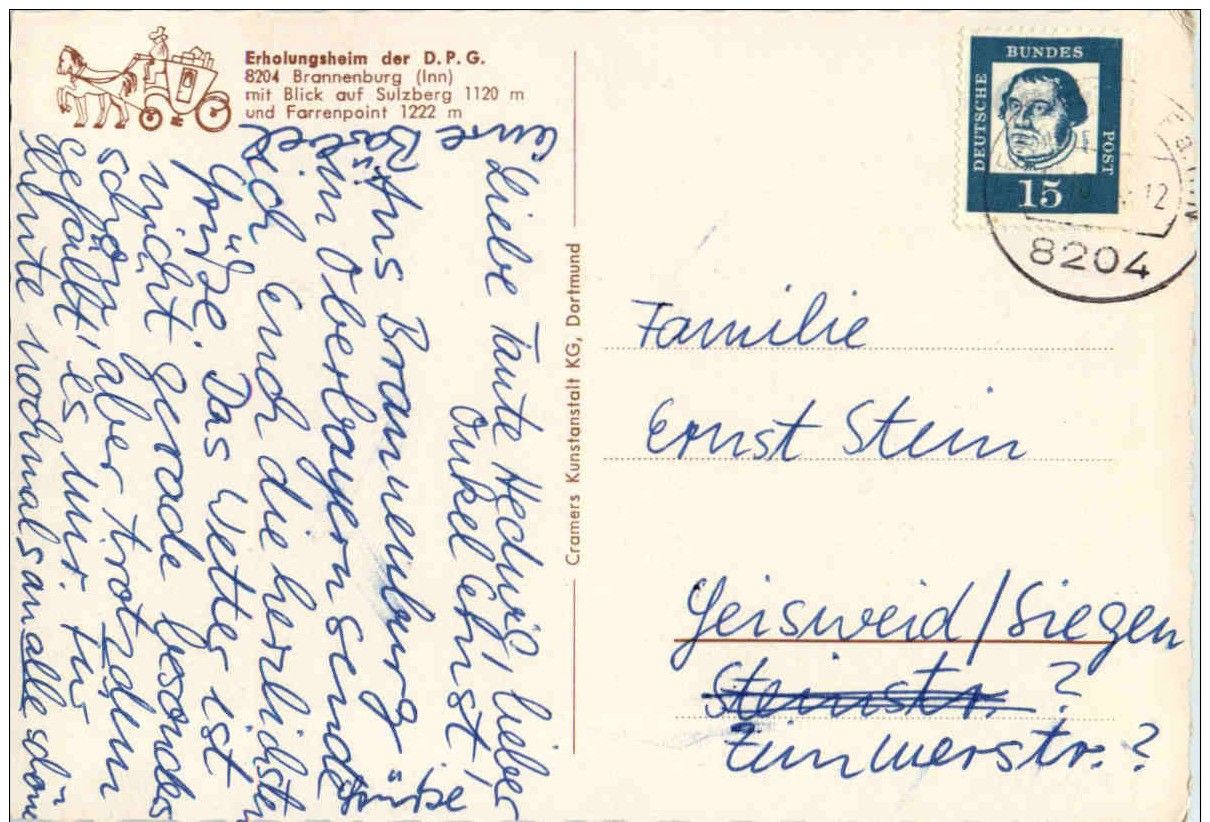 Erholungsheim der D.P.G.
8204 Brannenburg (Inn)
mit Blick auf Sulzberg 1120 m
und Farrenpoint 1222 m
Liebe Tante Hedwig, lieber
Onkel Ernst!
Aus Brannenburg
in Oberbayern sende
ich Euch die herzlichsten
Grüße. Das Wetter ist
nicht gerade besonders
schön, aber trotzdem
gefällt es mir. Für
heute nochmals an alle schöne
Grüße
Eure Bärbel
Cramers Kunstanstalt KG, Dortmund
DEUTSCHE
BUNDES
POST
15
12
8204
Familie
Ernst Stein
Geisweid/Siegen
Steinstr. ?
Zimmerstr. ?